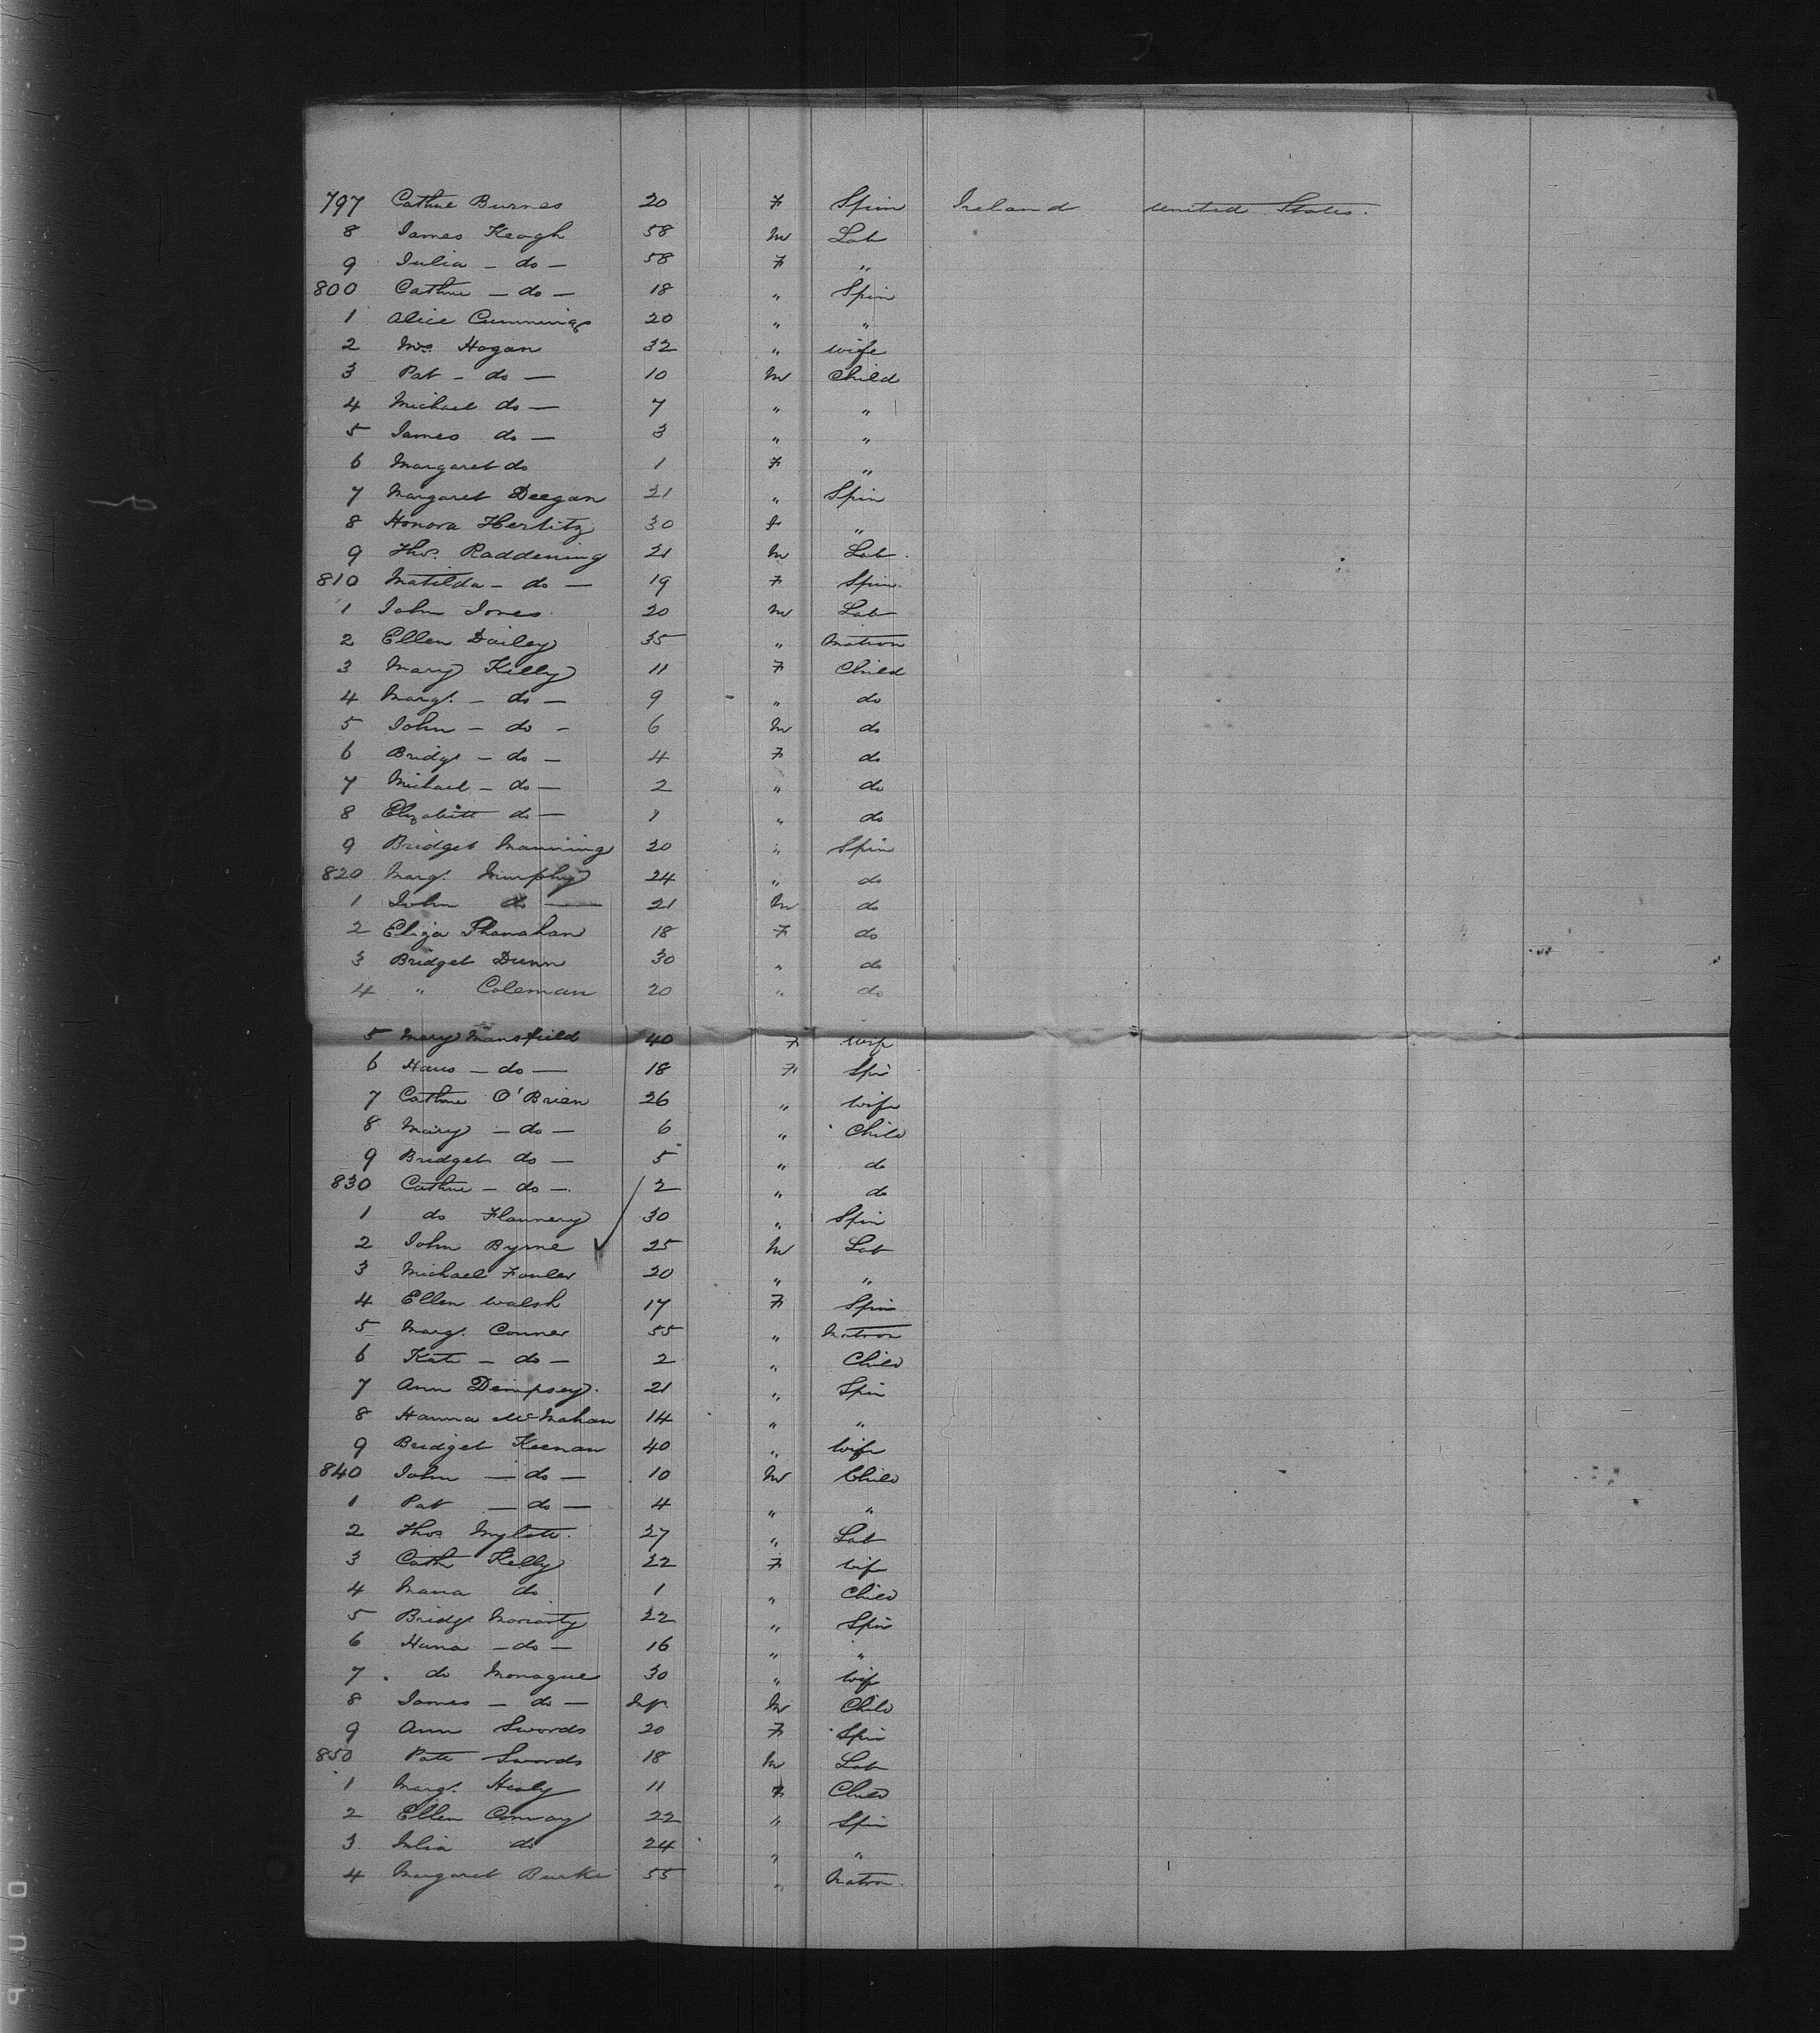 797 Cathne Burnes 20 F Spin Ireland United States.
8 James Keogh 58 M Lab
9 Julia - do - 58 F "
800 Cathne - do - 18 " Spin
1 Alice Cummings 20 " "
2 Mrs. Hogan 32 " Wife
3 Pat - do - 10 M Child
4 Michael do - 7 " "
5 James do - 3 " "
6 Margaret do 1 F "
7 Margaret Deegan 21 " Spin
8 Honora Herlitz 30 F "
9 Thos. Raddening 21 M Lab.
810 Matilda - do - 19 F Spin.
1 John Jones 20 M Lab
2 Ellen Dailey 35 " Matron
3 Mary Kelly 11 F Child
4 Margt. - do - 9 " do
5 John - do - 6 M do
6 Bridgt - do - 4 F do
7 Michael - do - 2 " do
8 Elizabeth do - 1 " do
9 Bridget Manning 20 " Spin
820 Margt. Murphy 24 " do
1 John do - 21 M do
2 Eliza Shanahan 18 F do
3 Bridget Dunn 30 " do
4 " Coleman 20 " do
5 Mary Mansfield 40 F Wife
6 - do - 18 F Spin
7 Cathne O'Brien 26 " Wife
8 Mary - do - 6 " Child
9 Bridget do - 5 " do
830 Cathne - do - 2 " do
1 do Flannery 30 " Spin
2 John Byrne 25 M Lab
3 Michael Fowler 20 " "
4 Ellen Walsh 17 F Spin
5 Margt. Conner 55 " Matron
6 Kate - do - 2 " Child
7 Ann Dempsey. 21 " Spin
8 Hanna McMahan 14 " "
9 Bridget Keenan 40 " Wife
840 John - do - 10 M Child
1 Pat - do - 4 " "
2 Thos 27 " Lab
3 Cath Kelly 22 F Wife
4 Maria do 1 " Child
5 Bridgt Moriarty 22 " Spin
6 Hana - do - 16 " "
7 do Monague 30 " Wife
8 James - do - Inft. M Child
9 Ann Swords 20 F Spin
850 Patk Swords 18 M Lab
1 Margt. Healy 11 F Child
2 Ellen Conway 22 " Spin
3 Julia do 24 " "
4 Margaret Burke 55 " Matron.